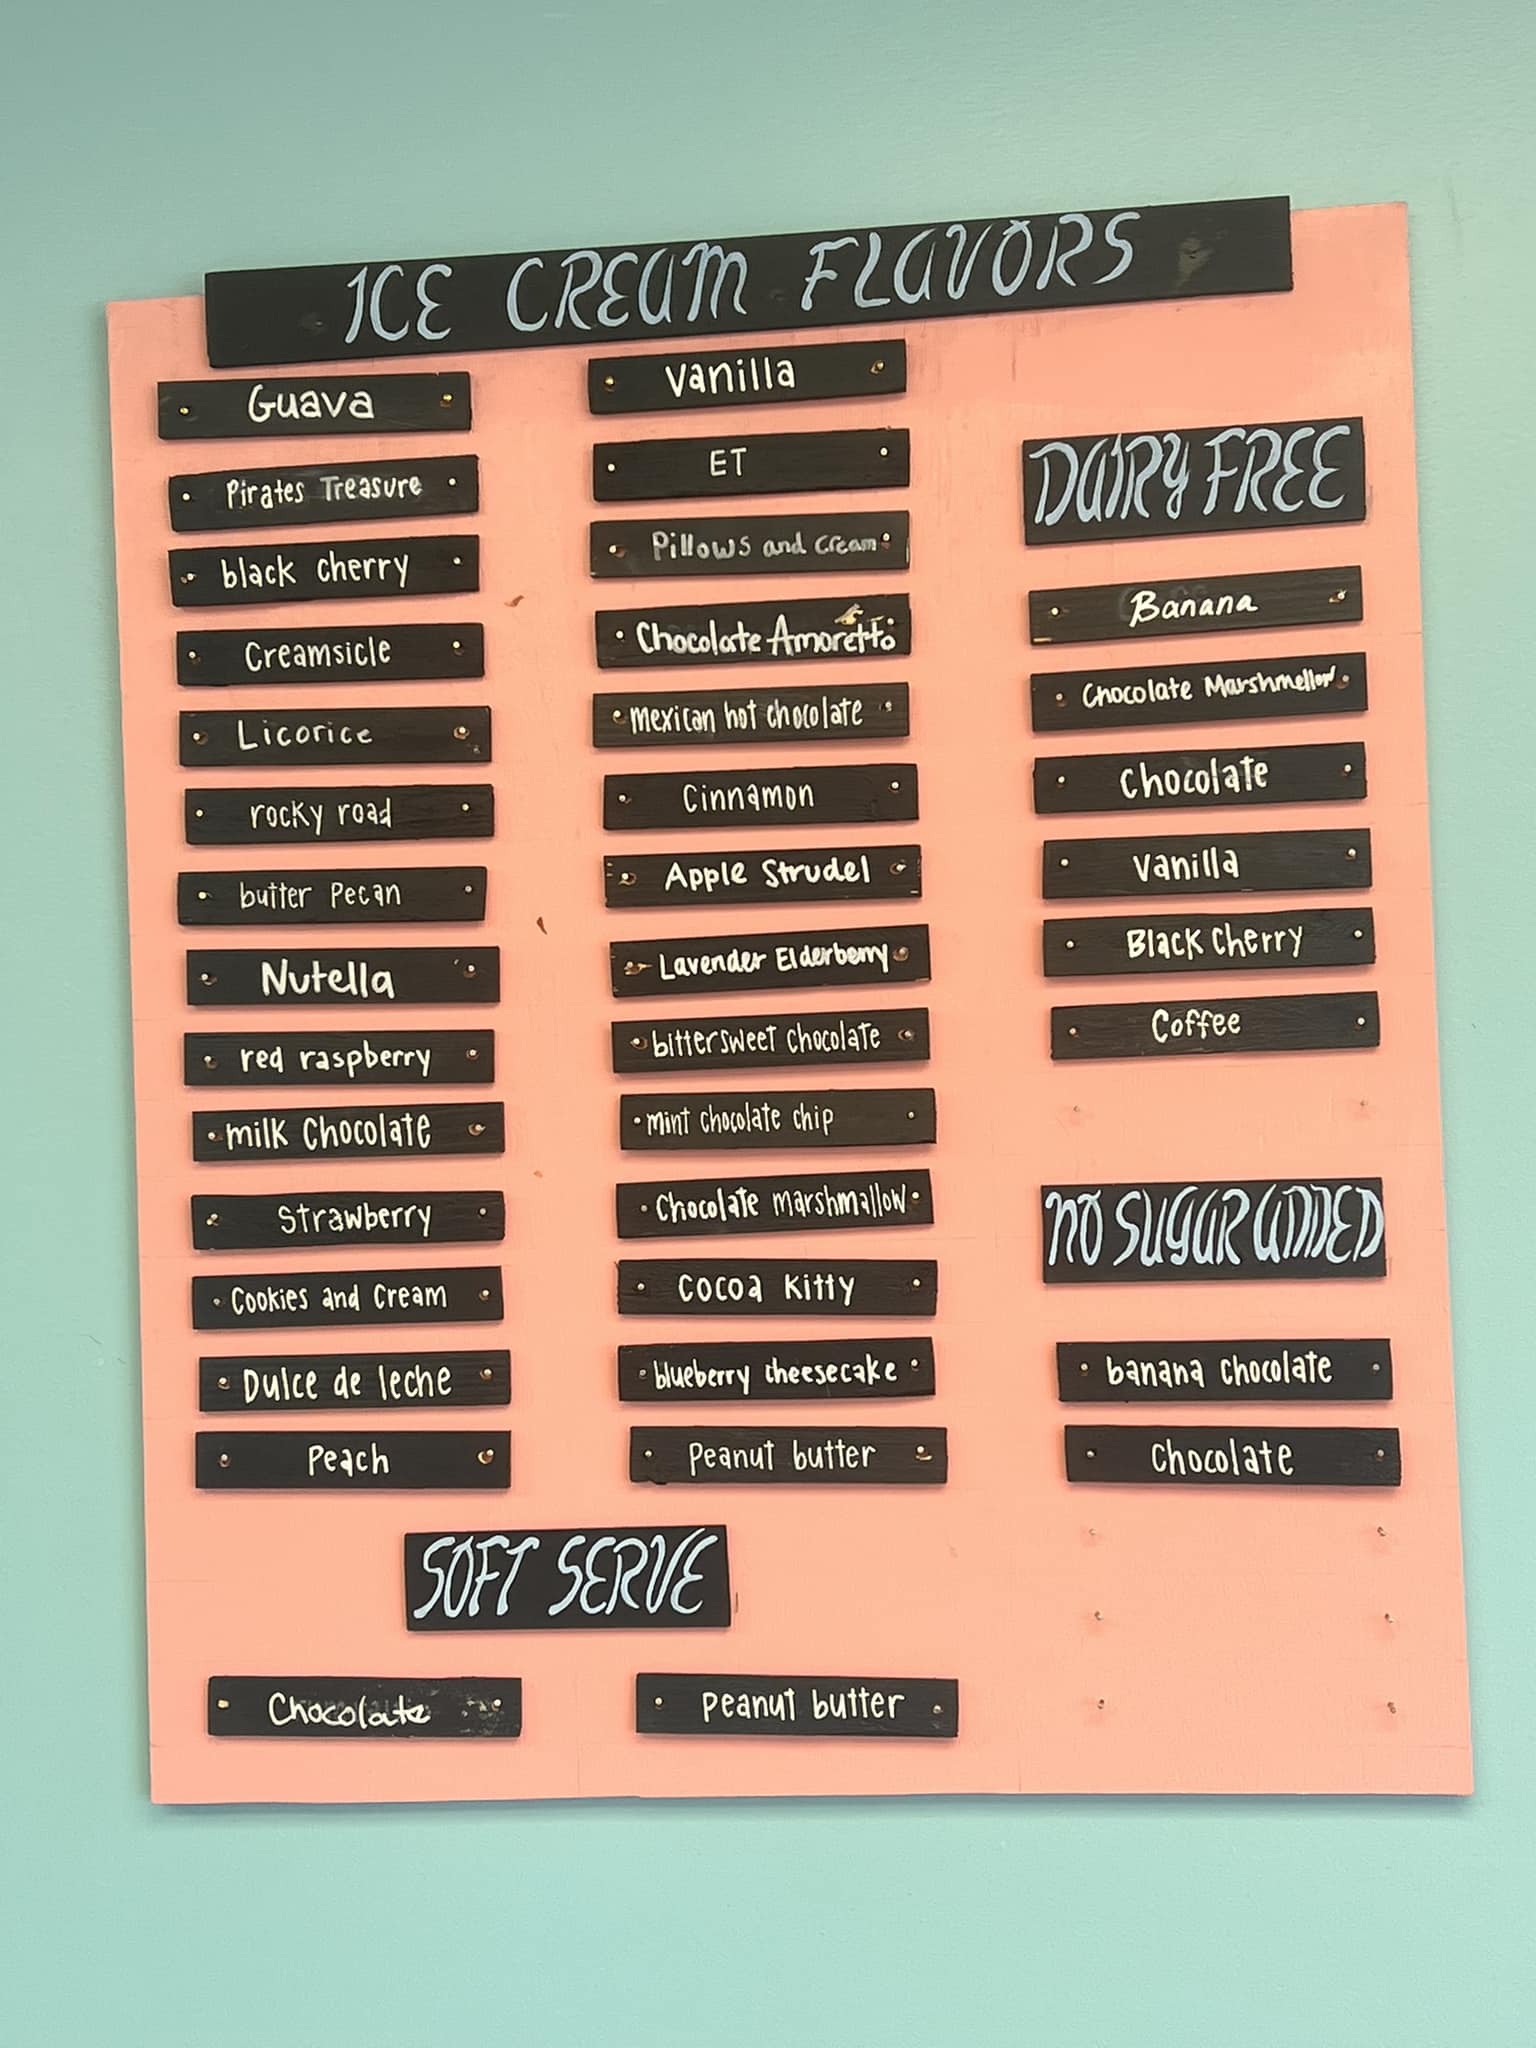 ICE CREAM FLAVORS
Guava
Pirates Treasure
black cherry
Creamsicle
Licorice
rocky road
butter Pecan
Nutella
red raspberry
milk Chocolate
Strawberry
Cookies and Cream
Dulce de leche
Peach
Vanilla
ET
Pillows and Cream
Chocolate Amoretto
mexican hot chocolate
Cinnamon
Apple Strudel
Lavender Elderberry
bittersweet chocolate
mint chocolate chip
Chocolate marshmallow
Cocoa Kitty
blueberry cheesecake
Peanut butter
DAIRY FREE
Banana
Chocolate Marshmellow
Chocolate
Vanilla
Black Cherry
Coffee
NO SUGAR ADDED
banana chocolate
Chocolate
SOFT SERVE
Chocolate
Peanut butter